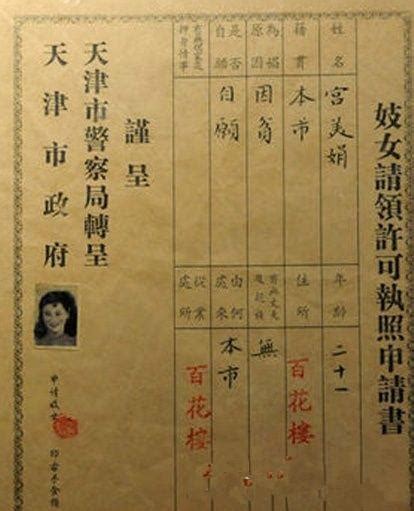 妓女請領許可執照申請書
姓名 宮美娟
年齡 二十一
籍貫 本市
住所 百花樓
為娼原因 因窮
有無丈夫及親族 無
是否自願 自願
由何處來 本市
押身情事
從業處所 百花樓
謹呈
天津市警察局轉呈
天津市政府
申請
印右手食指